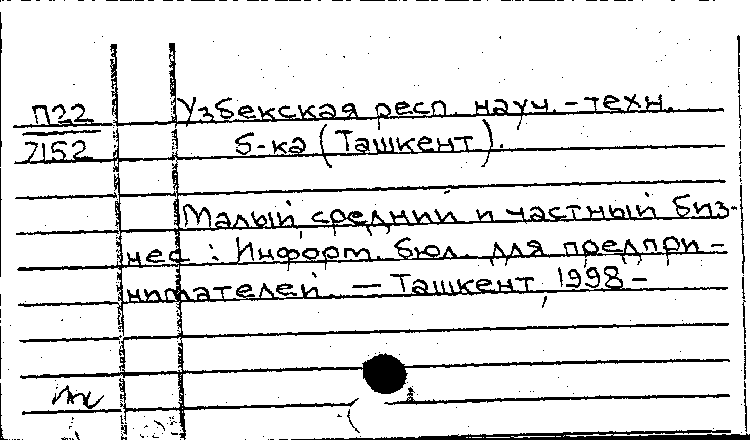 П22
7152
Узбекская респ. науч.-техн.
б-ка (Ташкент).
Малый, средний и частный биз-
нес : Информ. бюл. для предпри-
нимателей. — Ташкент, 1998-